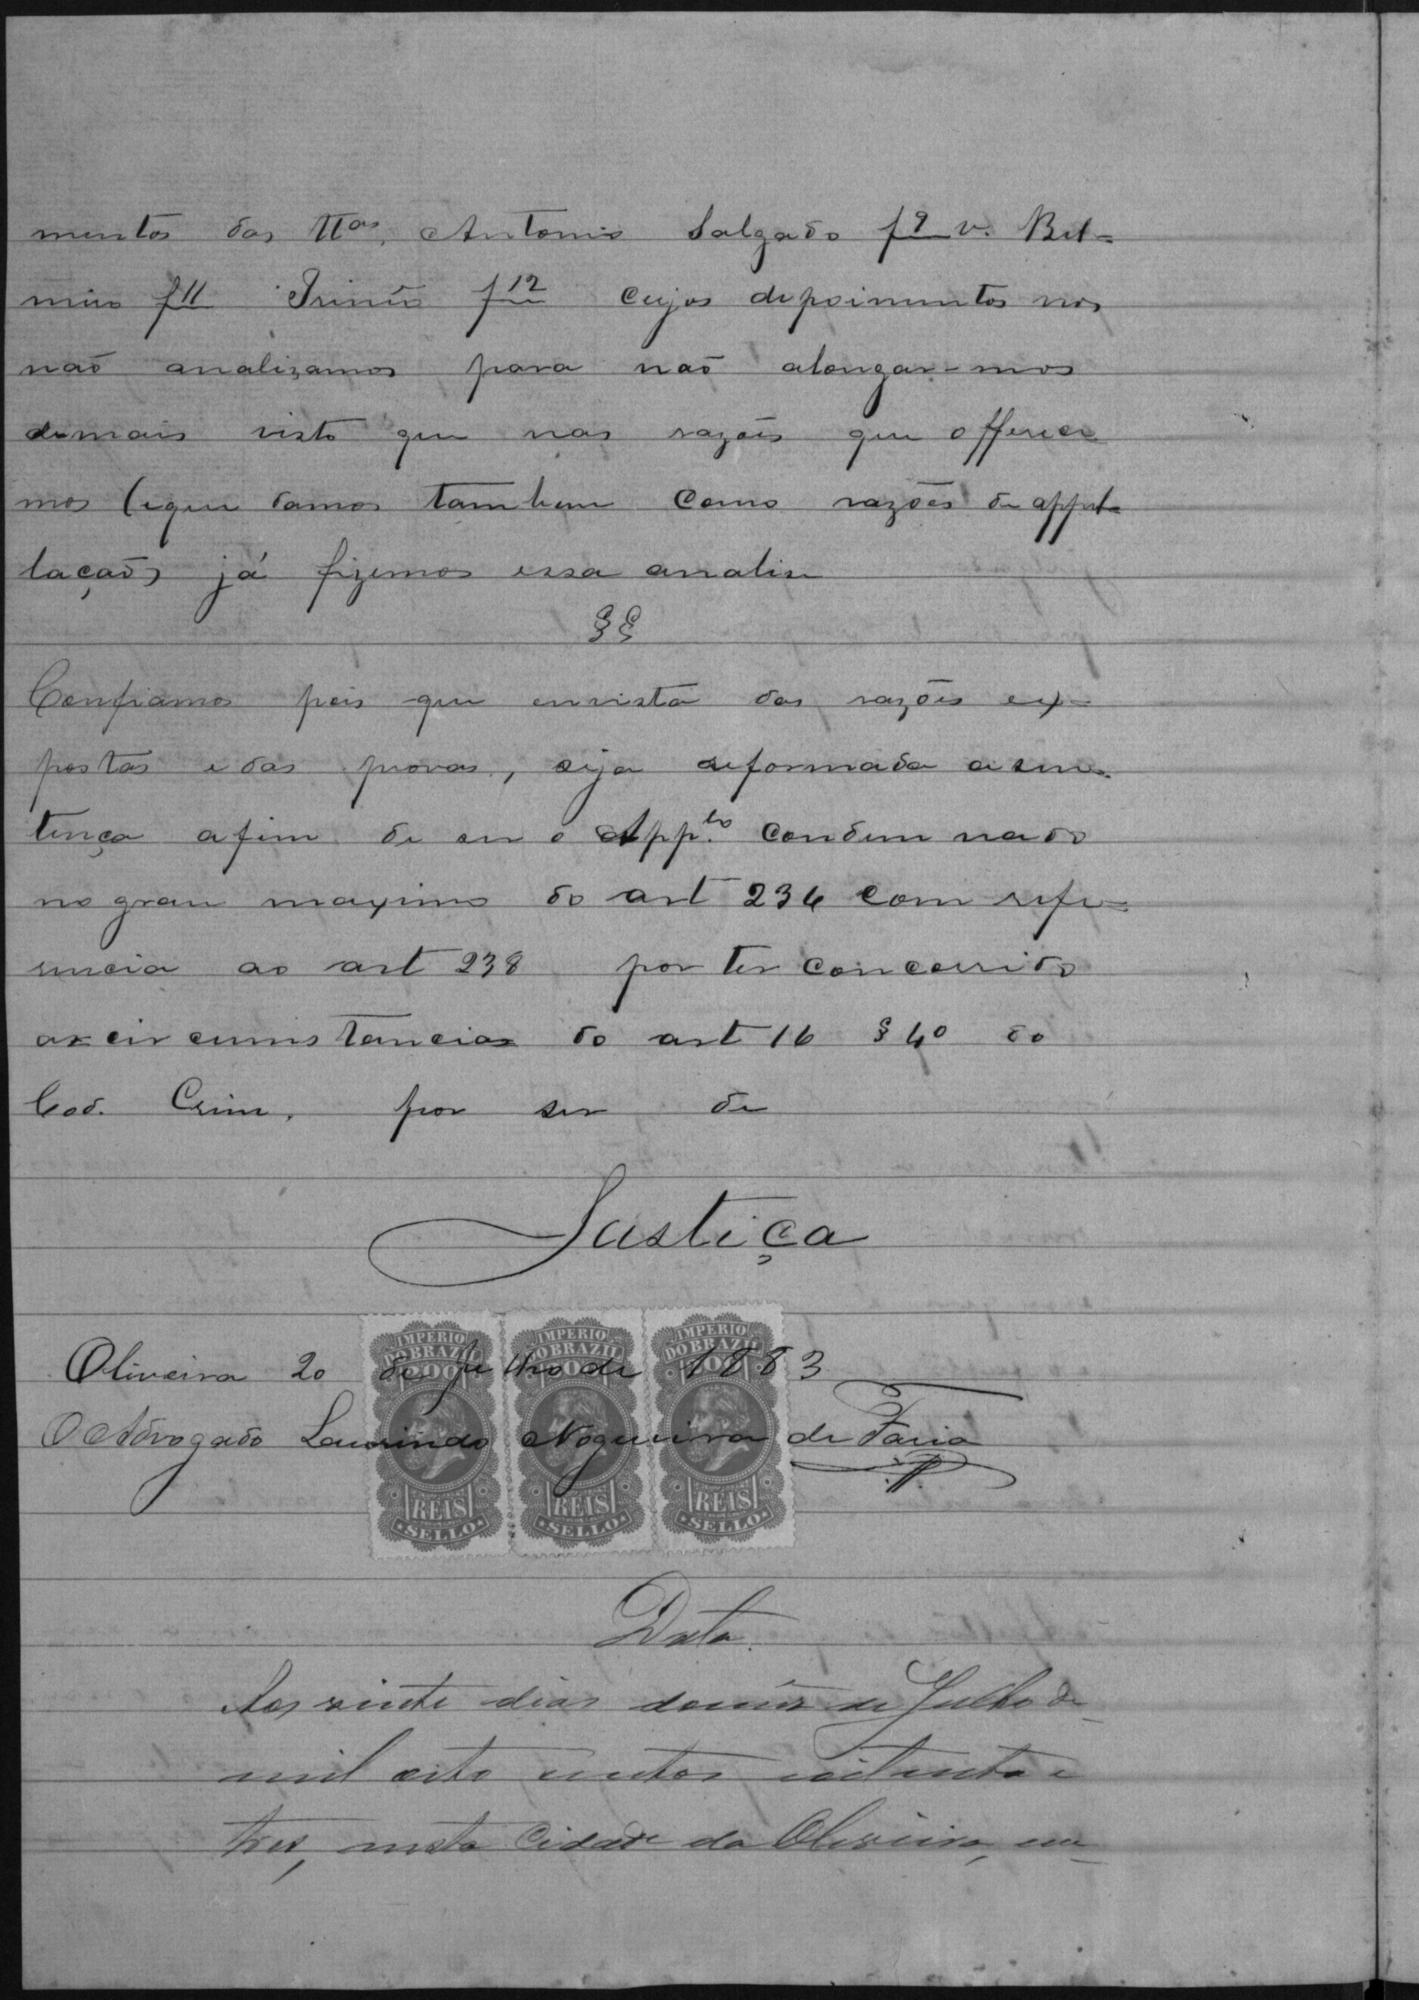 mentos das ttas. Antonio Salgado f 9 v. Bel-
miro f 11 Irinêo f 12 cujos depoimentos nos
não analizamos para não alongar-mos
demais visto que nas razões que offerece
mos (eque damos tambem como razões de appel-
lação) já fizemos essa analise
§§
Confiamos pois que envista das razões ex-
postas e das provas, seja reformada a sen-
tença afim de ser o Appdo. condemnado
no grau maximo do art 236 com refe-
rencia ao art 238 por ter concorrido
as circumstancias do art 16 § 4º do
Cod. Crim. por ser de
Justiça
IMPERIO IMPERIO IMPERIO
DO BRAZIL DO BRAZIL DO BRAZIL
200 200
Oliveira 20 de Julho de 1883
O Advogado Laurindo Nogueira de Faria
REIS REIS REIS
SELLO SELLO SELLO
Data.
Aos vinte dias domês de Julho de
mil oito centos eoitenta e
tres, nesta Cidade da Oliveira, em